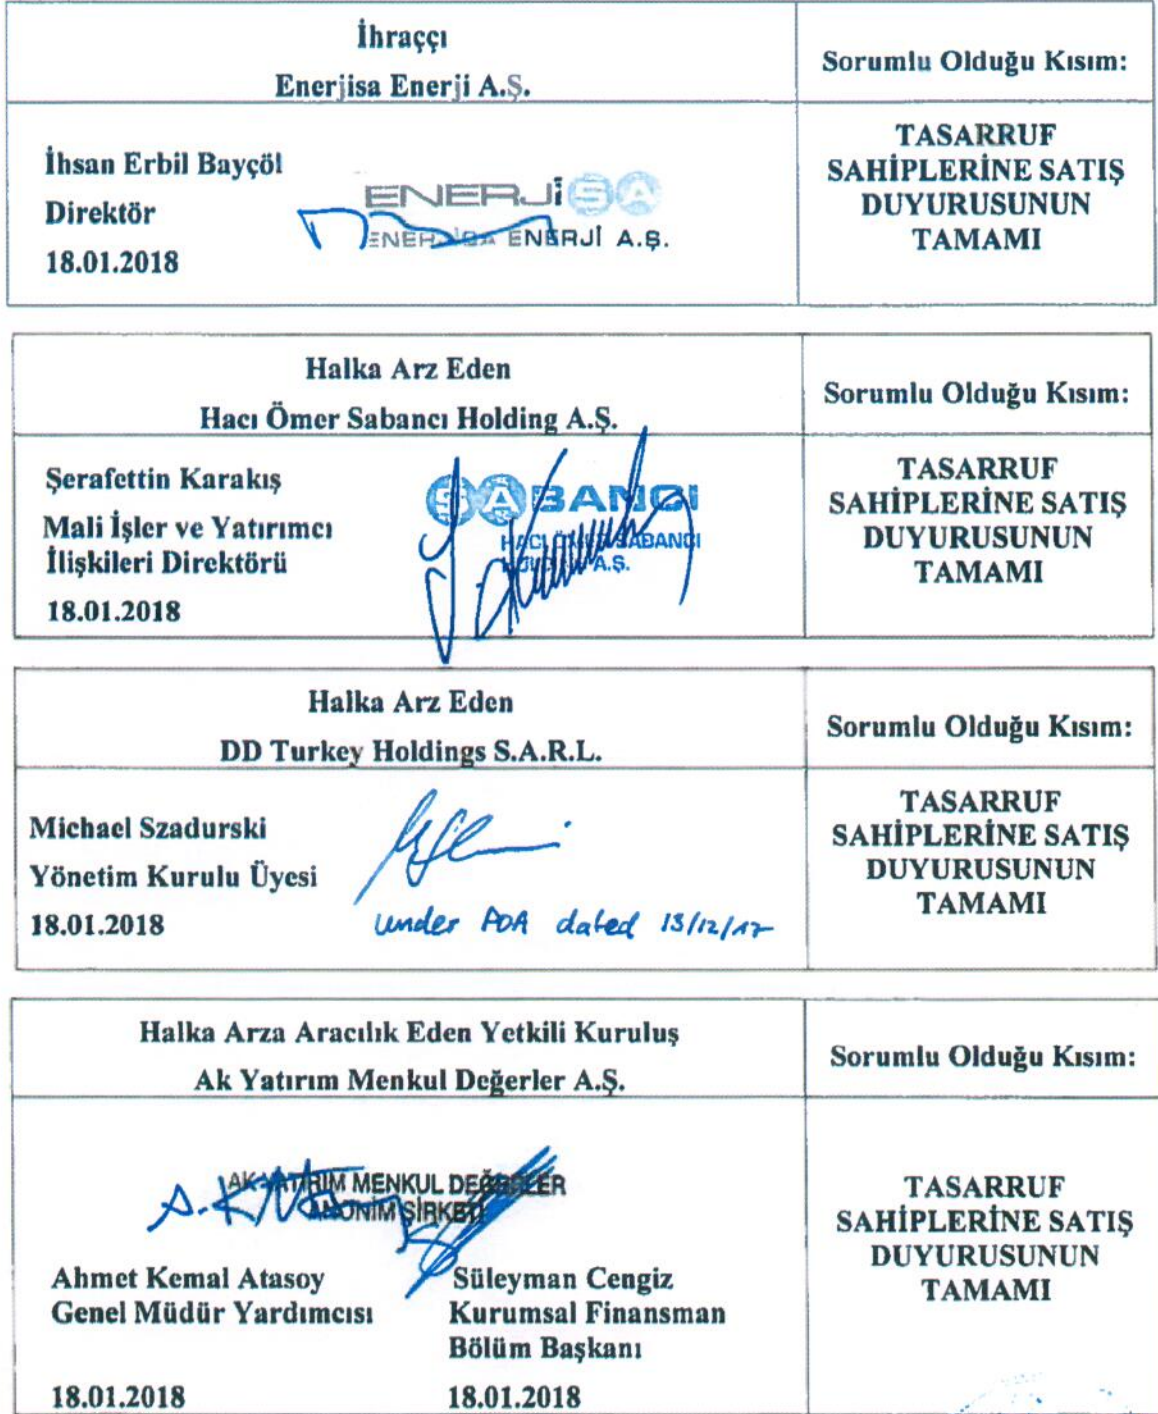 İhraççı
Enerjisa Enerji A.Ş.
Sorumlu Olduğu Kısım:
İhsan Erbil Bayçöl
Direktör
18.01.2018
ENERJİSA
ENERJİSA ENERJİ A.Ş.
TASARRUF
SAHİPLERİNE SATIŞ
DUYURUSUNUN
TAMAMI
Halka Arz Eden
Hacı Ömer Sabancı Holding A.Ş.
Sorumlu Olduğu Kısım:
Şerafettin Karakış
Mali İşler ve Yatırımcı
İlişkileri Direktörü
18.01.2018
SABANCI
HACI ÖMER SABANCI
HOLDİNG A.Ş.
TASARRUF
SAHİPLERİNE SATIŞ
DUYURUSUNUN
TAMAMI
Halka Arz Eden
DD Turkey Holdings S.A.R.L.
Sorumlu Olduğu Kısım:
Michael Szadurski
Yönetim Kurulu Üyesi
18.01.2018
under POA dated 13/12/17
TASARRUF
SAHİPLERİNE SATIŞ
DUYURUSUNUN
TAMAMI
Halka Arza Aracılık Eden Yetkili Kuruluş
Ak Yatırım Menkul Değerler A.Ş.
Sorumlu Olduğu Kısım:
AK YATIRIM MENKUL DEĞERLER
ANONİM ŞİRKETİ
Ahmet Kemal Atasoy
Genel Müdür Yardımcısı
18.01.2018
Süleyman Cengiz
Kurumsal Finansman
Bölüm Başkanı
18.01.2018
TASARRUF
SAHİPLERİNE SATIŞ
DUYURUSUNUN
TAMAMI